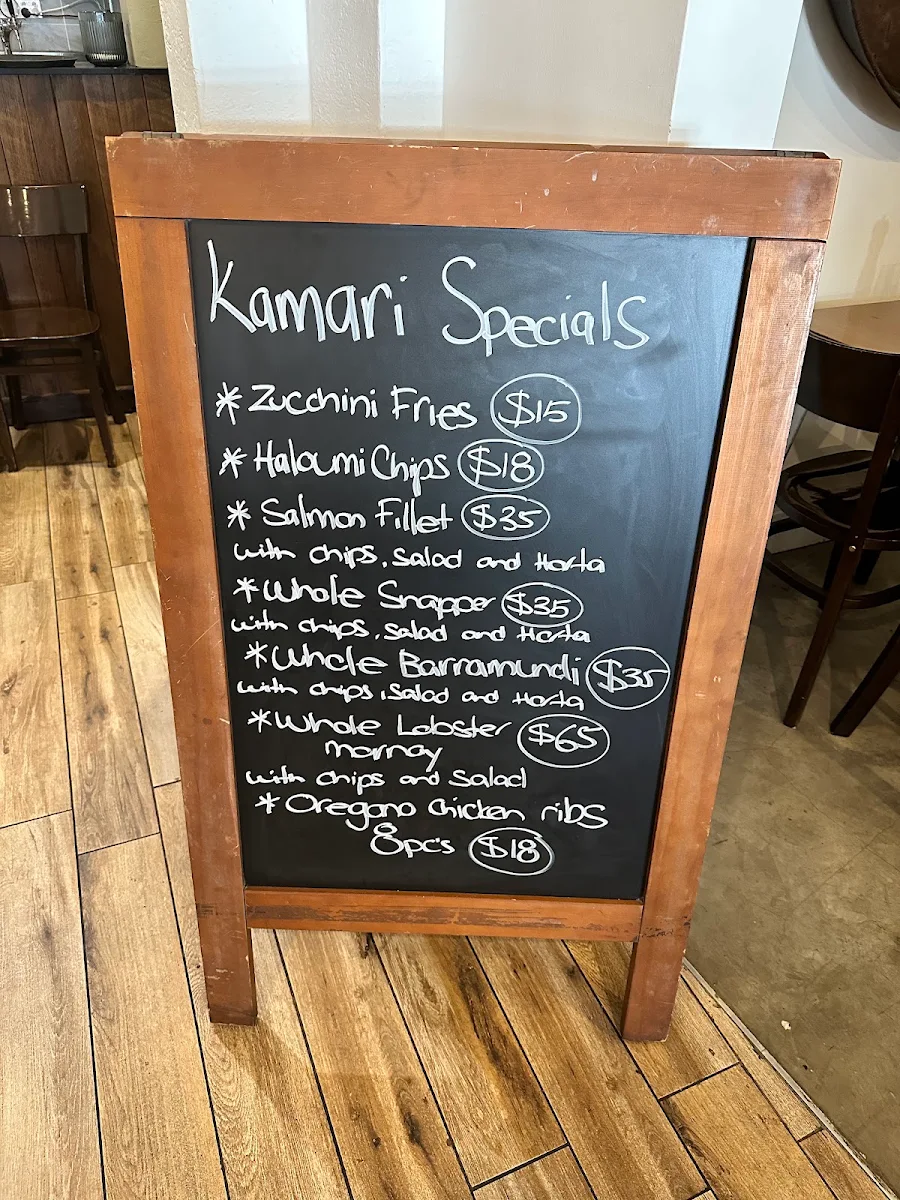 Kamari Specials
* Zucchini Fries $15
* Haloumi Chips $18
* Salmon Fillet $35
with chips, salad and Horta
* Whole Snapper $35
with chips, salad and Horta
* Whole Barramundi $35
with chips, salad and Horta
* Whole Lobster $65
mornay
with chips and Salad
* Oregano Chicken ribs
8pc's $18